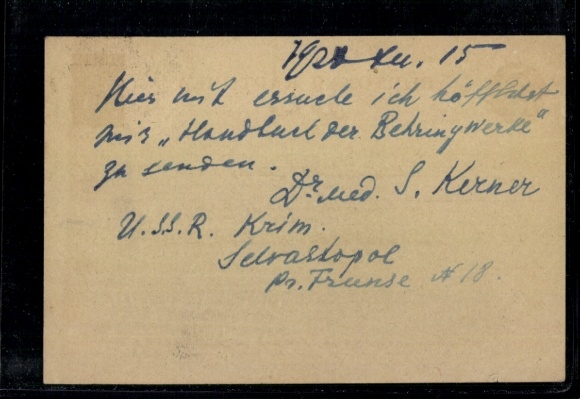 Hier mit ersuche ich höfflichst
mir „Handbuch der Behringwerke“
zu senden.
Dr. med. S. Kerner
U.S.S.R. Krim.
Sewastopol
Pr. Frunse N 18.